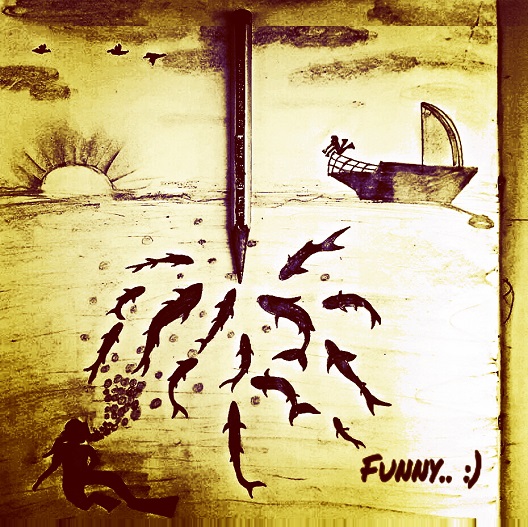 Funny.. :)